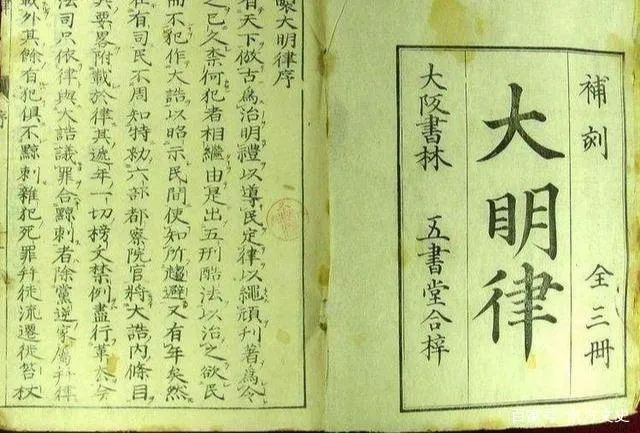 補刻 全三冊
大明律
大阪書林 五書堂合梓
製大明律序
有天下倣古為治明禮以導民定律以繩頑刊著為令
之已久柰何犯者相繼由是出五刑酷法以治之欲民
而不犯作大誥以昭示民間使知所趨避又有年矣然
在有司民不周知特勑六部都察院官將大誥內條目
其要畧附載於律其逓年一切榜文禁例盡行革去今
法司只依律與大誥議罪合黥刺者除黨逆家屬幷律
載外其餘有犯俱不黥刺雜犯死罪幷徒流遷徙笞杖